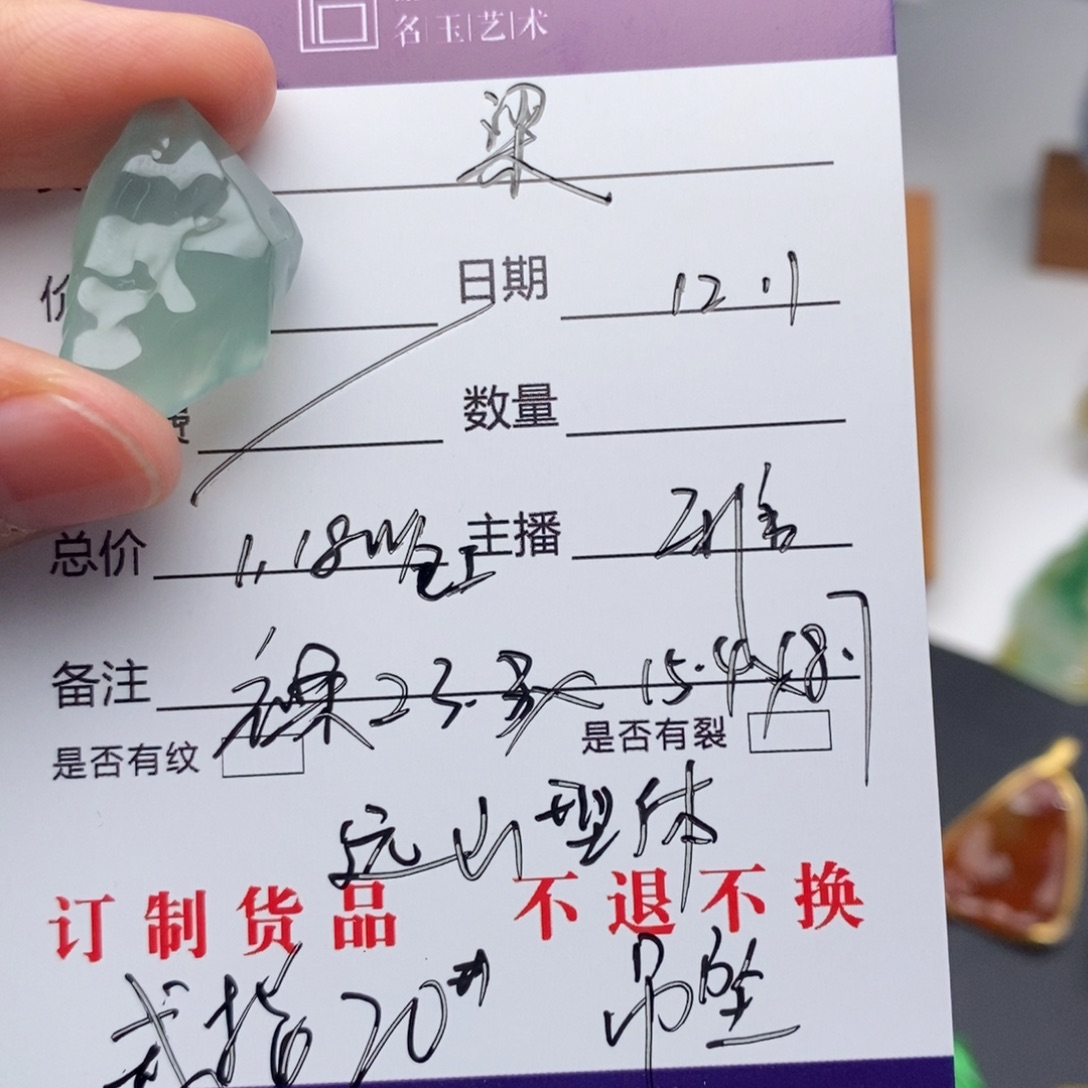 名|玉|艺|术
梁
日期 12.1
数量
总价 1.18W/包工 主播
备注 裸23.3×15.4×8.7
是否有纹 是否有裂
远山型体
订制货品 不退不换
戒指20# 吊坠